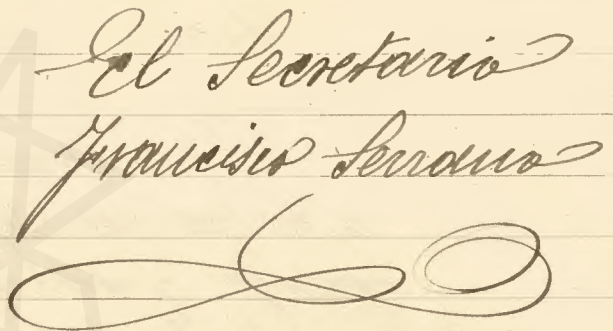 El Secretario
Francisco Serrano